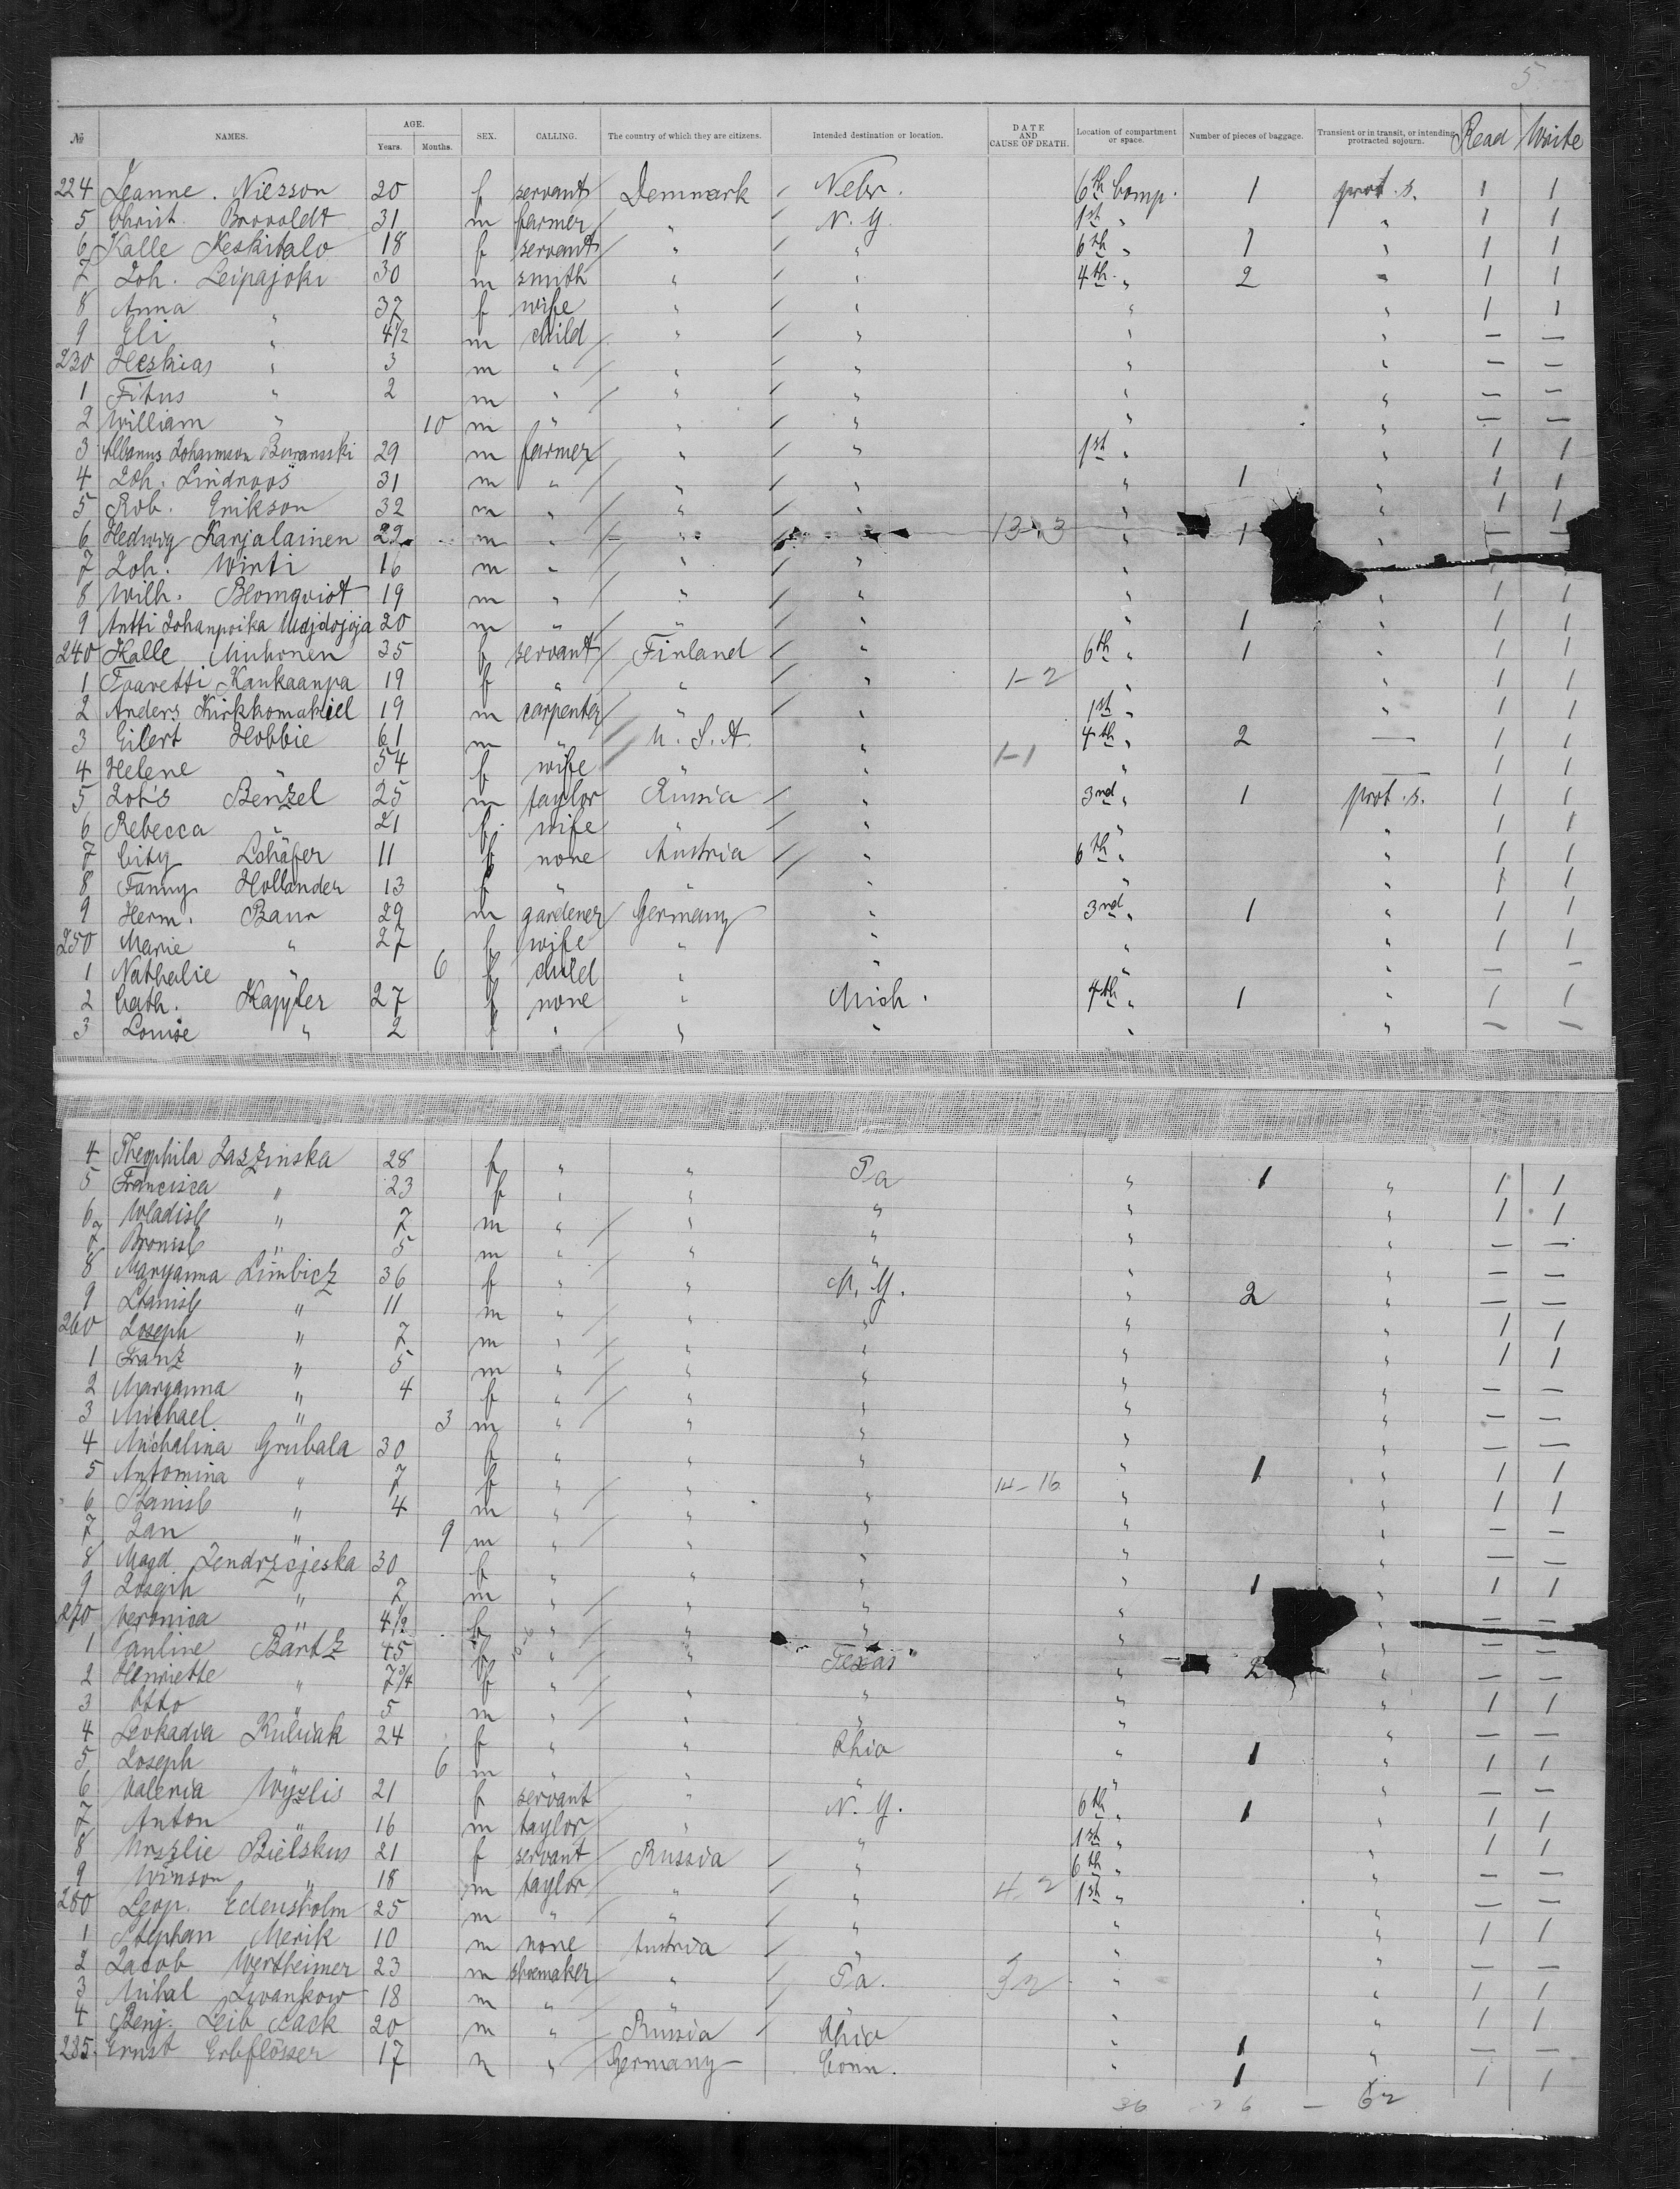 5
№ NAMES. AGE. Years. Months. SEX. CALLING. The country of which they are citizens. Intended destination or location. DATE AND CAUSE OF DEATH. Location of compartment or space. Number of pieces of baggage. Transient or in transit, or intending protracted sojourn. Read Write
224 Jeanne . Niesson 20 f servant Denmark Nebr. 6th Comp. 1 prot. s. 1 1
5 Christ. Brovoldt 31 m farmer " N. Y. 1st " " 1 1
6 Kalle Keskitalo 18 f servant " " 6th " 1 " 1 1
7 Joh. Leipajoki 30 m smith " " 4th " 2 " 1 1
8 Anna " 37 f wife " " " " 1 1
9 Eli " 4 1/2 m child " " " " — —
230 Heskias " 3 m " " " " " — —
1 Titus " 2 m " " " " " — —
2 William " 10 m " " " " " — —
3 Albanus Johannson Buranski 29 m farmer " " 1st " " 1 1
4 Joh. Lindroos 31 m " " " " 1 " 1 1
5 Rob. Erikson 32 m " " " " 1 1
6 Hedwig Karjalainen 22 m " " " 13-3 " 1 " — —
7 Joh. Wirti 16 m " " " "
8 Wilh. Blomqvist 19 m " " " " " 1 1
9 Antti Johanpoika 20 m " " " " 1 " 1 1
240 Kalle Muhonen 35 f servant Finland " 6th " 1 " 1 1
1 Kankaanpa 19 f " " " 1-2 " " 1 1
2 Anders 19 m carpenter " " 1st " " 1 1
3 Eilert Hobbie 61 m " U. S. A. " 4th " 2 — 1 1
4 Helene " 54 f wife " " 1-1 " — 1 1
5 Benzel 25 m taylor Russia " 3rd " 1 prot. s. 1 1
6 Rebecca " 21 f wife " " " " 1 1
7 City Schäfer 11 f none Austria " 6th " " 1 1
8 Fanny Hollander 13 f " " " " " 1 1
9 Herm. Baur 29 m gardener Germany " 3rd " 1 " 1 1
250 Marie " 27 f wife " " " " 1 1
1 Nathalie " 6 f child " " " " — —
2 Cath. Kappler 27 f none " Mich. 4th " 1 " 1 1
3 Louise " 2 f " " " " " — —
4 Theophila Jaszinska 28 f " " Pa " 1 " 1 1
5 Francisca " 23 f " " " " " 1 1
6 Wladisl " 7 m " " " " " — —
7 Bronisl " 5 m " " " " " — —
8 Maryanna Limbicz 36 f " " N. Y. " 2 " — —
9 Stanisl " 11 m " " " " " 1 1
260 Joseph " 7 m " " " " " 1 1
1 Franz " 5 m " " " " " — —
2 Maryanna " 4 f " " " " " — —
3 Michael " 3 m " " " " " — —
4 Michalina Grubala 30 f " " " " 1 " 1 1
5 Antonina " 7 f " " " 14-16 " " 1 1
6 Stanisl " 4 m " " " " " — —
7 Jan " 9 m " " " " " — —
8 Magd. Jendrzejeska 30 f " " " " 1 " 1 1
9 Joseph " 7 m " " " " " — —
270 Veronica " 4 1/2 f " " " " — —
1 Pauline Bartz 45 f " " Texas " 2 " — —
2 Henriette " 7 3/4 f " " " " " 1 1
3 Otto " 5 m " " " " " — —
4 Leokadia Kubiak 24 f " " Ohio " 1 " 1 1
5 Joseph 6 m " " " " " — —
6 Valeria Wyzlis 21 f servant " N. Y. 6th " 1 " 1 1
7 Anton " 16 m taylor " " 1st " " 1 1
8 Urszlie Bielskus 21 f servant Russia " 6th " " — —
9 Winson " 18 m taylor " " 4-2 1st " " — —
280 Leop. Edensholm 25 m " " " " " 1 1
1 Stephan Merik 10 m none Austria " " " — —
2 Jacob Wertheimer 23 m shoemaker " Pa. " " 1 1
3 Mihal Iwankow 18 m " " " " " 1 1
4 Benj. Leib Sack 20 m " Russia Ohio " 1 " — —
285 Ernst Erbflösser 17 m " Germany Conn. " 1 " 1 1
36 26 — 62